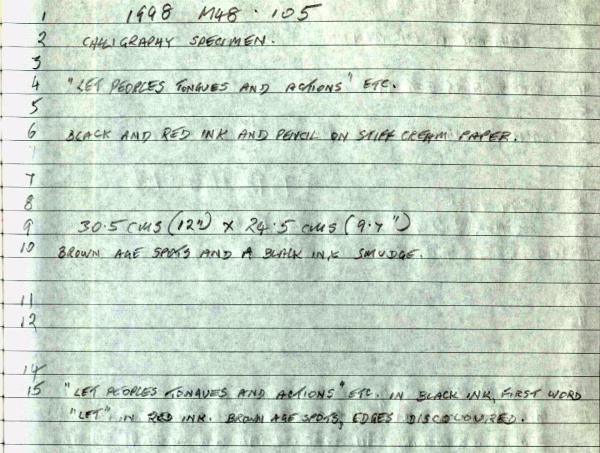 1 1998 M48 · 105
2 CALLIGRAPHY SPECIMEN.
3
4 "LET PEOPLES TONGUES AND ACTIONS" ETC.
5
6 BLACK AND RED INK AND PENCIL ON STIFF CREAM PAPER.
7
8
9 30.5 cms (12") x 24.5 cms (9.7")
10 BROWN AGE SPOTS AND A BLACK INK SMUDGE.
11
12
14
15 "LET PEOPLES TONGUES AND ACTIONS" ETC. IN BLACK INK, FIRST WORD
"LET" IN RED INK. BROWN AGE SPOTS, EDGES DISCOLOURED.